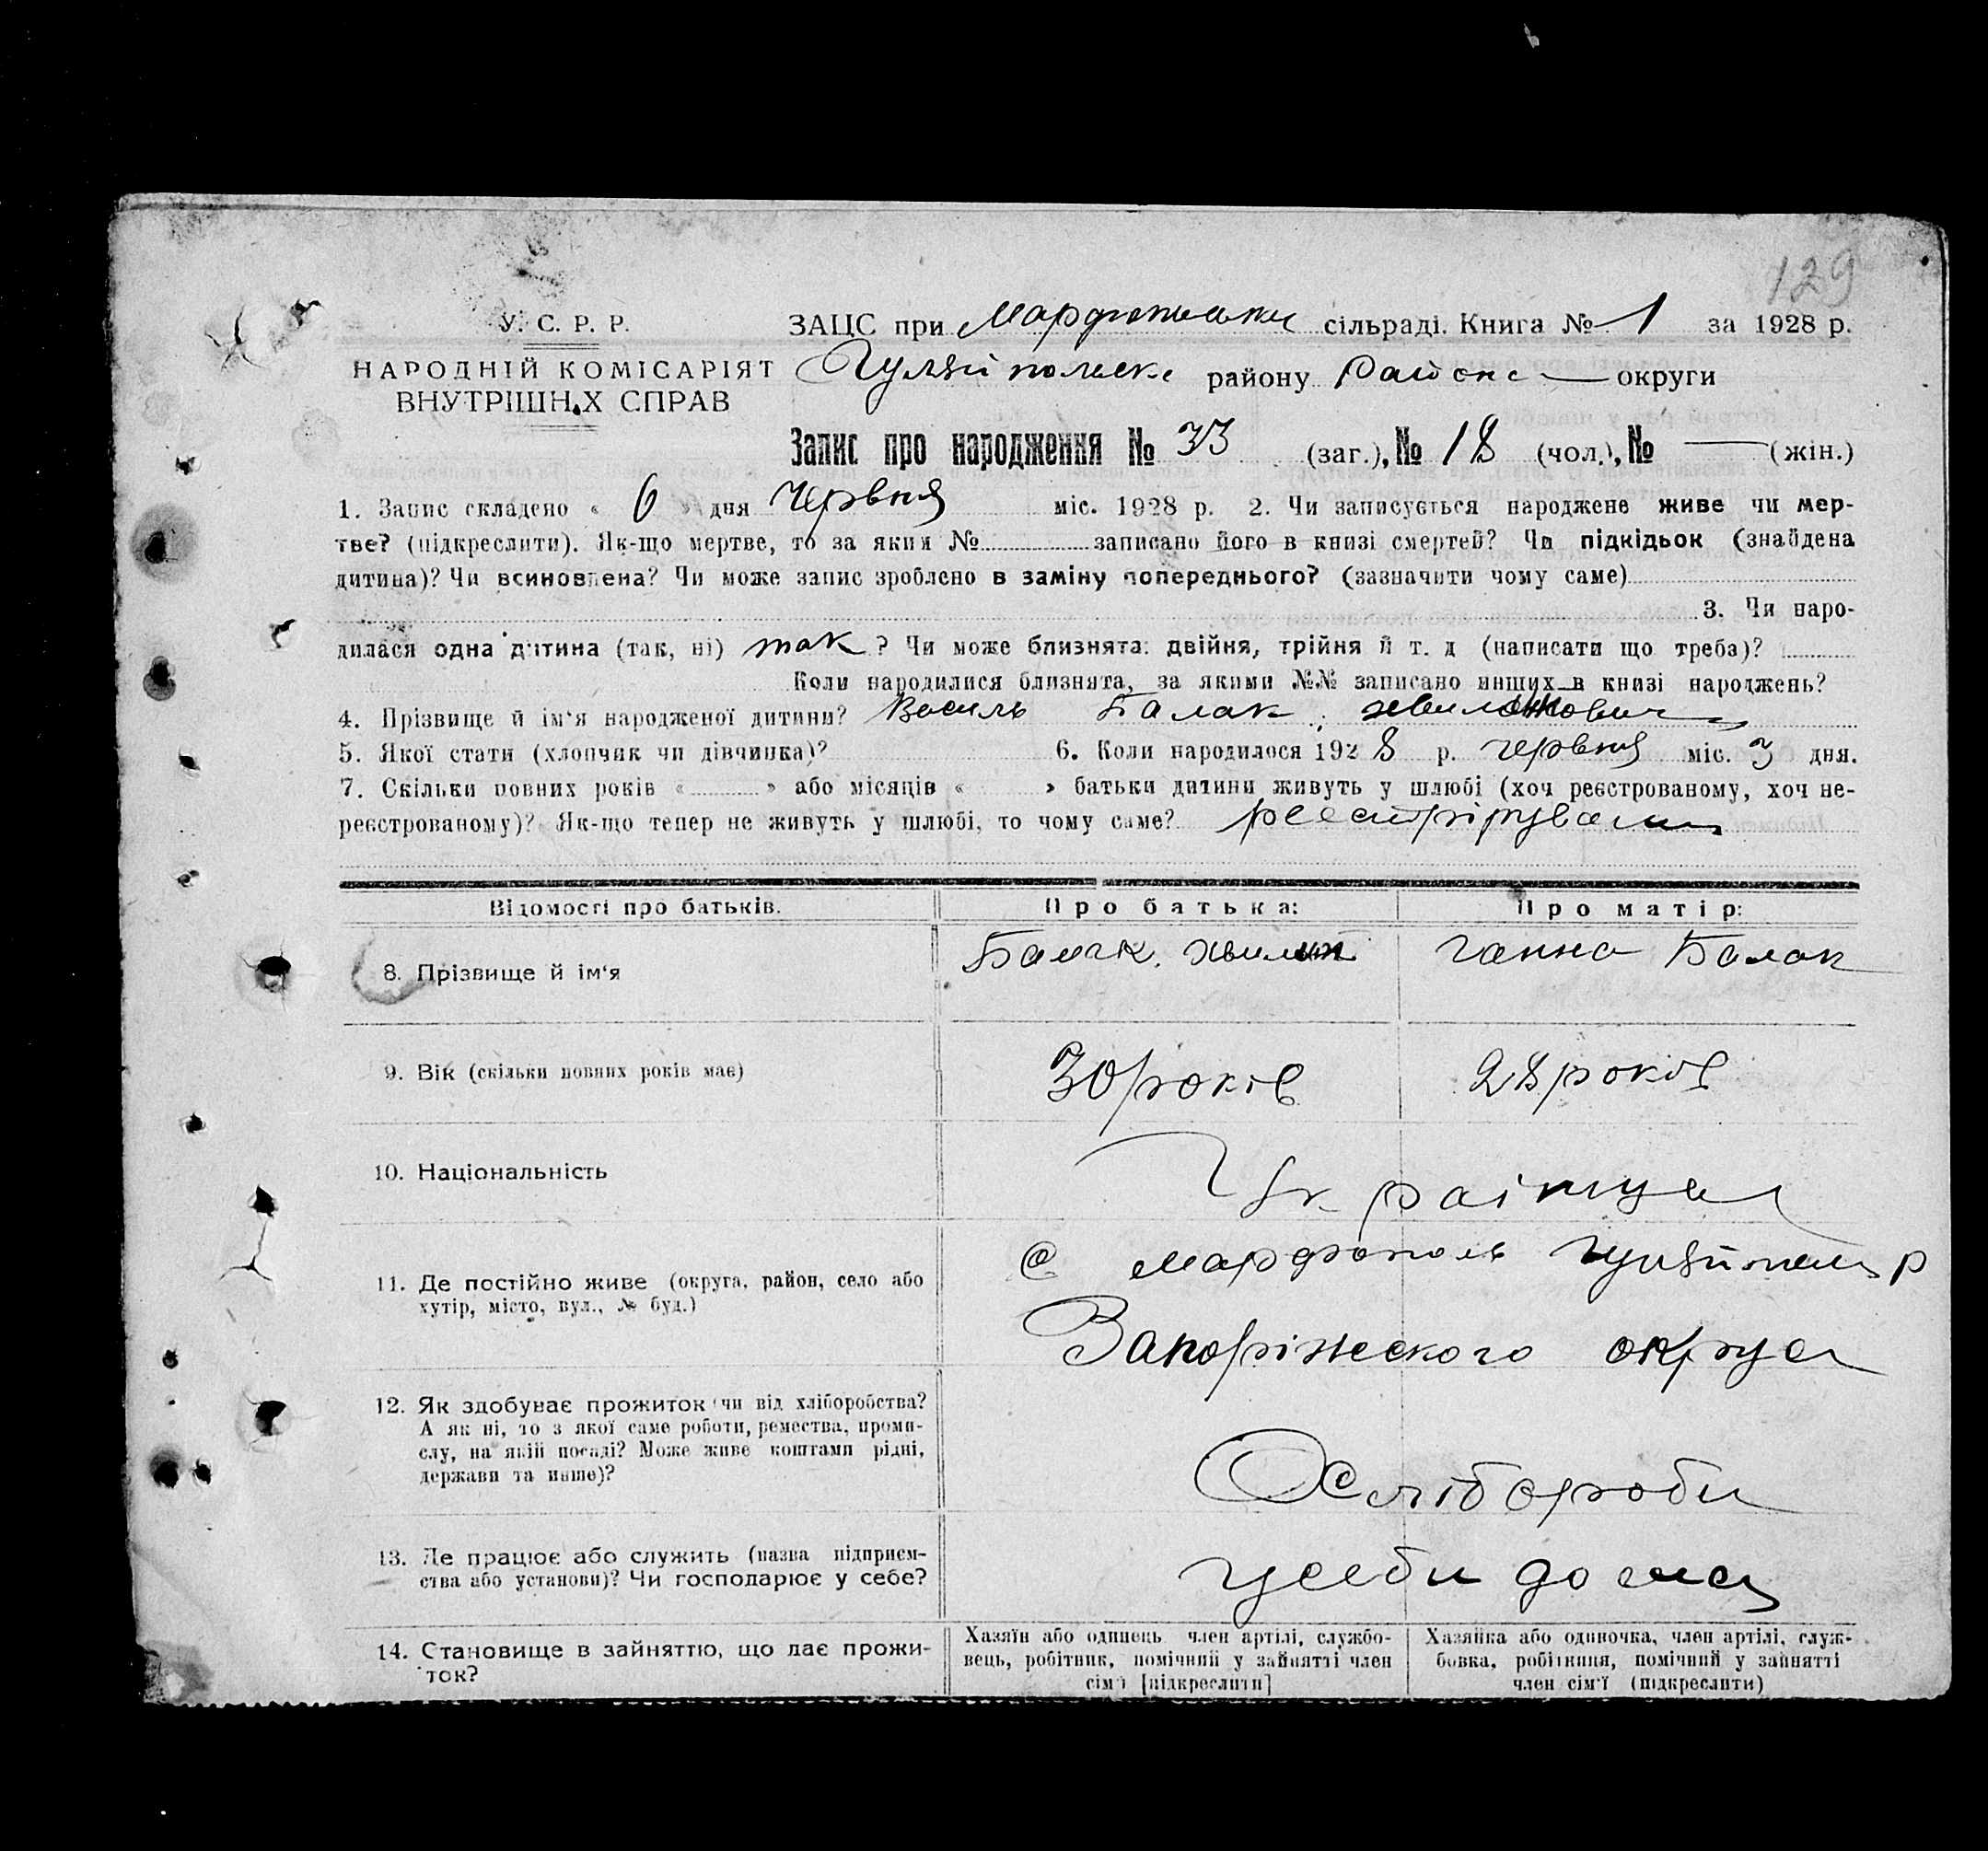 129
У. С. Р. Р.
НАРОДНІЙ КОМІСАРІЯТ
ВНУТРІШНІХ СПРАВ
ЗАЦС при сільраді. Книга № 1 за 1928 р.
району округи
Запис про народження № 33 (заг.), № 18 (чол.), № — (жін.)
1. Запис складено « 6 » дня Червня міс. 1928 р. 2. Чи записується народжене живе чи мер-
тве? (підкреслити). Як-що мертве, то за яким № записано його в книзі смертей? Чи підкідьок (знайдена
дитина)? Чи всиновлена? Чи може запис зроблено в заміну попереднього? (зазначити чому саме)
3. Чи наро-
дилася одна дитина (так, ні) так ? Чи може близнята: двійня, трійня й т. д (написати що треба)?
Коли народилися близнята, за якими №№ записано инших в книзі народжень?
4. Прізвище й ім‘я народженої дитини? Василь Балак
5. Якої стати (хлопчик чи дівчинка)? 6. Коли народилося 1928 р. червня міс. 3 дня.
7. Скільки повних років « » або місяців « » батьки дитини живуть у шлюбі (хоч реєстрованому, хоч не-
реєстрованому)? Як-що тепер не живуть у шлюбі, то чому саме?
Відомості про батьків. Про батька: Про матір:
8. Прізвище й ім‘я Балак Ганна Балак
9. Вік (скільки повних років має) 30 років 28 років
10. Національність
11. Де постійно живе (округа, район, село або
хутір, місто, вул., № буд.)
С Марфополь р
Запоріжского округа
12. Як здобуває прожиток (чи від хліборобства?
А як ні, то з якої саме роботи, ремества, проми-
слу, на якій посаді? Може живе коштами рідні,
держави та инше)?
Хлібороби
13. Де працює або служить (назва підприєм-
ства або установи)? Чи господарює у себе?
усеби дома
14. Становище в зайняттю, що дає прожи-
ток?
Хазяїн або одинець член артілі, службо-
вець, робітник, помічний у зайнятті член
сім‘ї [підкреслити]
Хазяйка або одиночка, член артілі, служ-
бовка, робітниця, помічний у зайнятті
член сім‘ї (підкреслити)